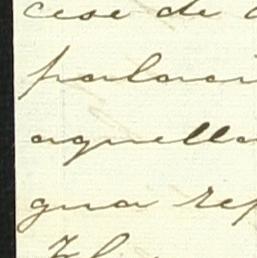 cese de
palaci
aquella
gua rep